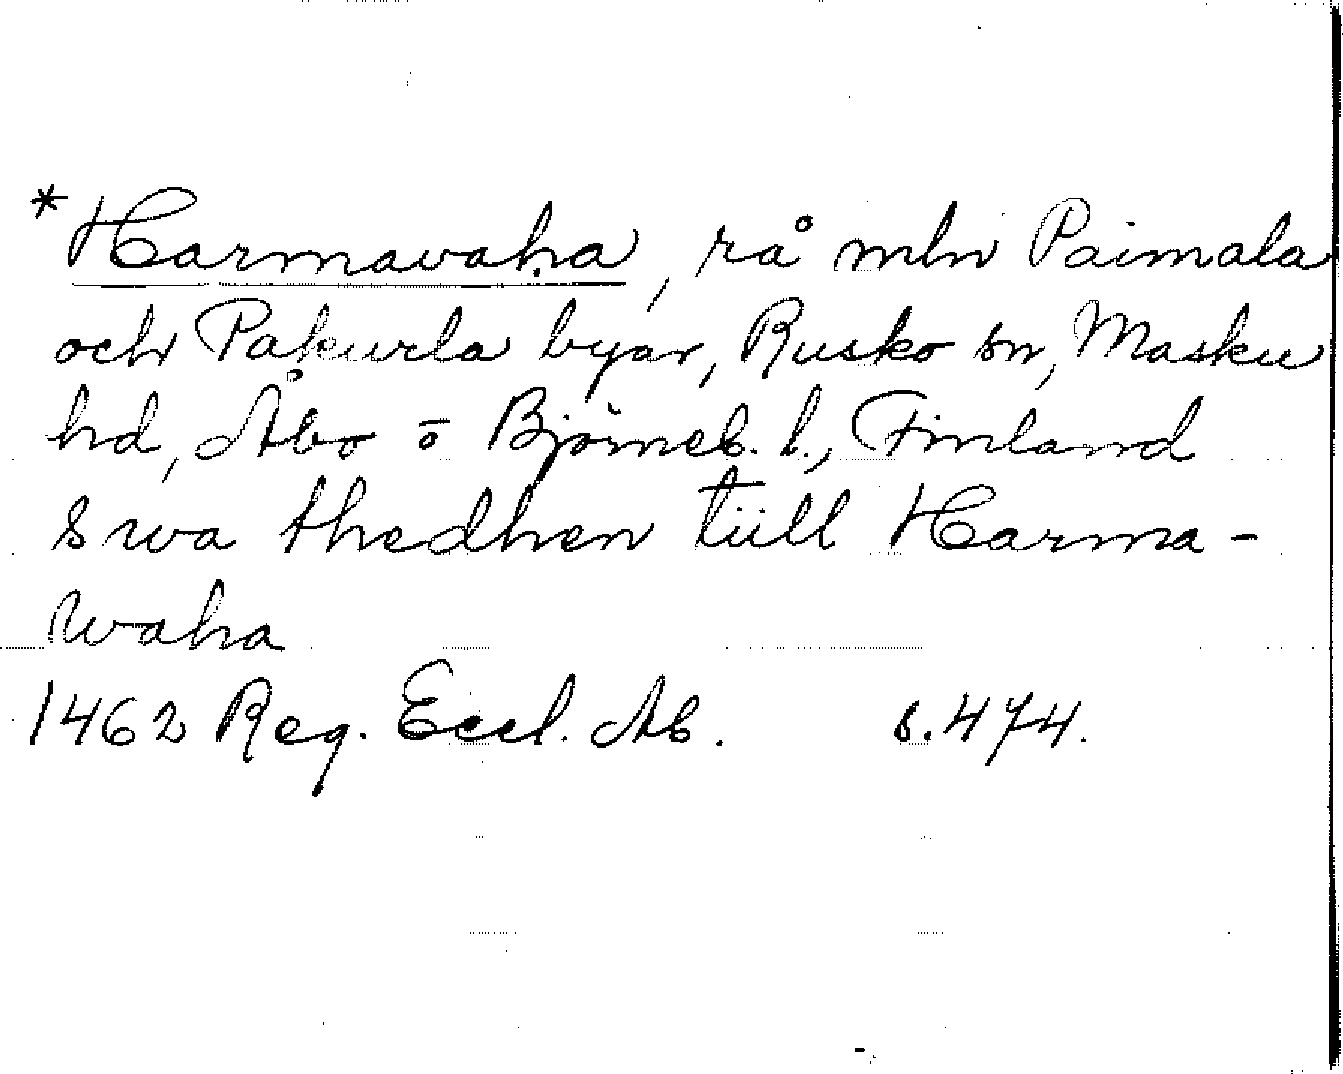 *Harmavaha, rå mln Paimala
och Pakurla byar, Rusko sn, Masku
hd, Åbo o Björneb. l., Finland
swa thedhen tiill Harma-
waha
1462 Reg. Eccl. Ab. s. 474.